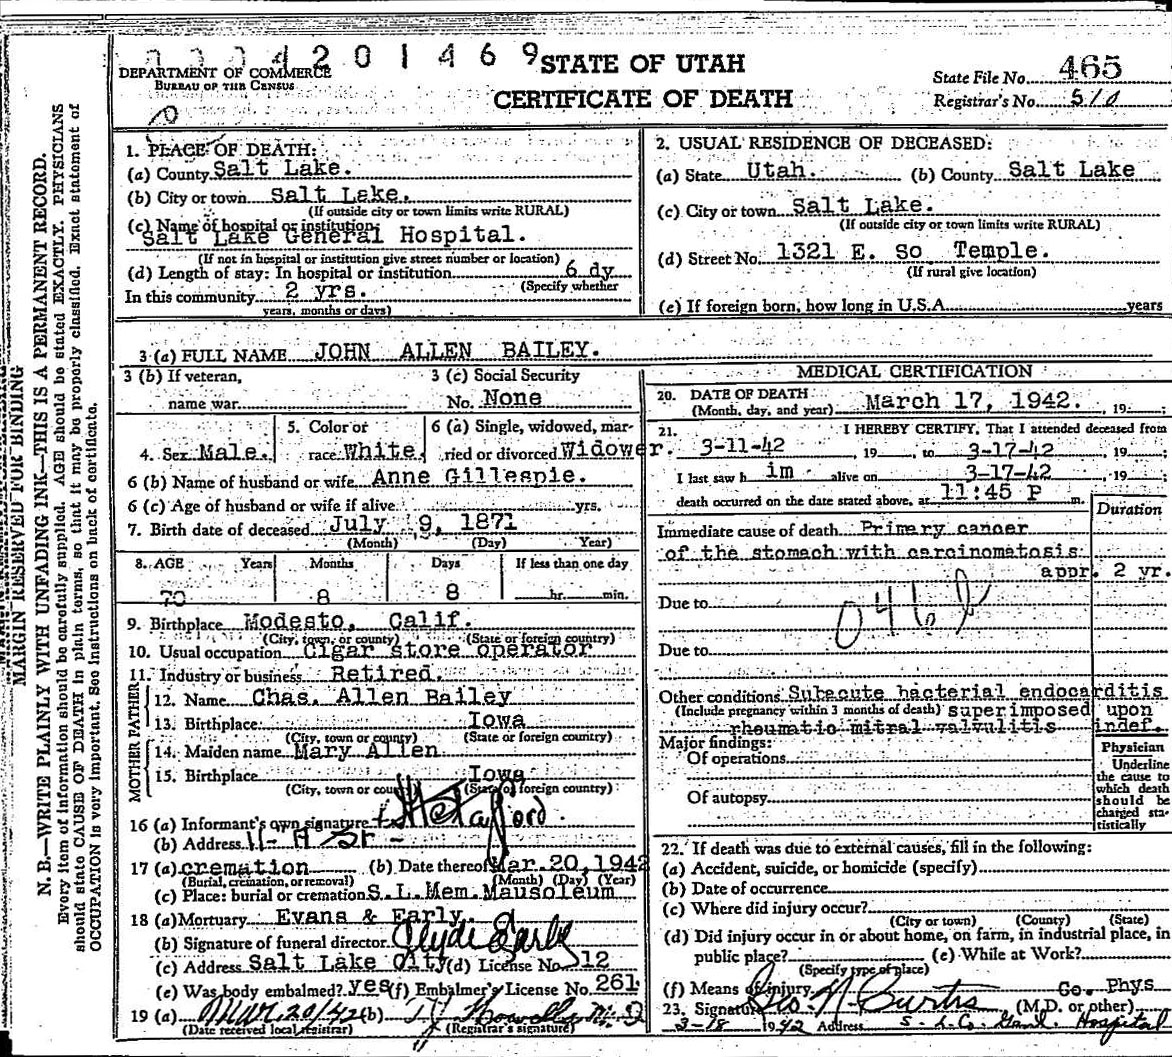 4 2 0 1 4 6 9
STATE OF UTAH
CERTIFICATE OF DEATH
DEPARTMENT OF COMMERCE
BUREAU OF THE CENSUS
State File No. 465
Registrar's No. 510
MARGIN RESERVED FOR BINDING
N. B.—WRITE PLAINLY WITH UNFADING INK—THIS IS A PERMANENT RECORD.
Every item of information should be carefully supplied. AGE should be stated EXACTLY. PHYSICIANS
should state CAUSE OF DEATH in plain terms, so that it may be properly classified. Exact statement of
OCCUPATION is very important. See instructions on back of certificate.
1. PLACE OF DEATH:
(a) County Salt Lake.
(b) City or town Salt Lake.
(If outside city or town limits write RURAL)
(c) Name of hospital or institution:
Salt Lake General Hospital.
(If not in hospital or institution give street number or location)
(d) Length of stay: In hospital or institution 6 dy
(Specify whether
In this community 2 yrs.
years, months or days)
2. USUAL RESIDENCE OF DECEASED:
(a) State Utah. (b) County Salt Lake
(c) City or town Salt Lake.
(If outside city or town limits write RURAL)
(d) Street No. 1321 E. So Temple.
(If rural give location)
(e) If foreign born, how long in U.S.A. years
3 (a) FULL NAME JOHN ALLEN BAILEY.
3 (b) If veteran, name war
3 (c) Social Security No. None
4. Sex Male.
5. Color or race White.
6 (a) Single, widowed, married or divorced Widower.
6 (b) Name of husband or wife Anne Gillespie.
6 (c) Age of husband or wife if alive yrs.
7. Birth date of deceased July 9, 1871
(Month) (Day) Year)
8. AGE Years Months Days If less than one day
70 8 8 hr. min.
9. Birthplace Modesto, Calif.
(City, town, or county) (State or foreign country)
10. Usual occupation Cigar store operator
11. Industry or business Retired.
FATHER
12. Name Chas. Allen Bailey
13. Birthplace Iowa
(City, town or county) (State or foreign country)
MOTHER
14. Maiden name Mary Allen
15. Birthplace Iowa
(City, town or county) (State or foreign country)
16 (a) Informant's own signature Stafford.
(b) Address 11- A St -
17 (a) cremation (b) Date thereof Mar. 20, 1942
(Burial, cremation, or removal) (Month) (Day) (Year)
(c) Place: burial or cremation S.L. Mem. Mausoleum
18 (a) Mortuary Evans & Early
(b) Signature of funeral director Clyde Early
(c) Address Salt Lake City (d) License No. 12
(e) Was body embalmed? yes (f) Embalmer's License No. 261
19 (a) Mar 20/42 (b) M.D
(Date received local registrar) (Registrar's signature)
MEDICAL CERTIFICATION
20. DATE OF DEATH
(Month, day, and year) March 17, 1942. , 19 ;
21. I HEREBY CERTIFY, That I attended deceased from
3-11-42 , 19 , to 3-17-42 , 19 ;
I last saw h im alive on 3-17-42 , 19 ;
death occurred on the date stated above, at 11:45 P m.
Duration
Immediate cause of death Primary cancer
of the stomach with carcinomatosis
appr. 2 yr.
Due to
046 b
Due to
Other conditions Subacute bacterial endocarditis
(Include pregnancy within 3 months of death) superimposed upon
rheumatic mitral valvulitis indef.
Major findings:
Of operations
Of autopsy
Physician
Underline
the cause to
which death
should be
charged sta-
tistically
22. If death was due to external causes, fill in the following:
(a) Accident, suicide, or homicide (specify)
(b) Date of occurrence
(c) Where did injury occur?
(City or town) (County) (State)
(d) Did injury occur in or about home, on farm, in industrial place, in
public place? (e) While at Work?
(Specify type of place)
(f) Means of injury Co. Phys
23. Signature Geo. N. Curtis (M.D. or other)
3-18 1942 Address S. L. Co. Genl. Hospital